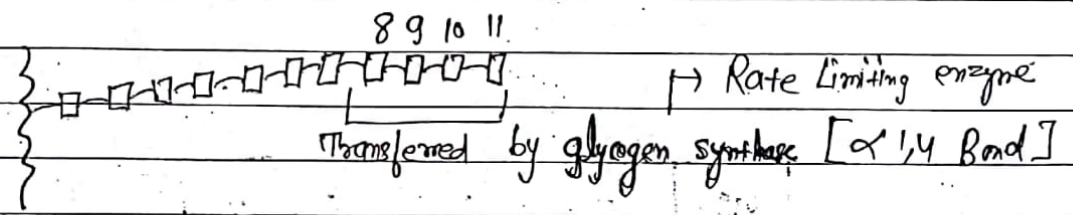 8 9 10 11
↦ Rate Limiting enzyme
Transferred by glycogen synthase [α 1,4 Bond]